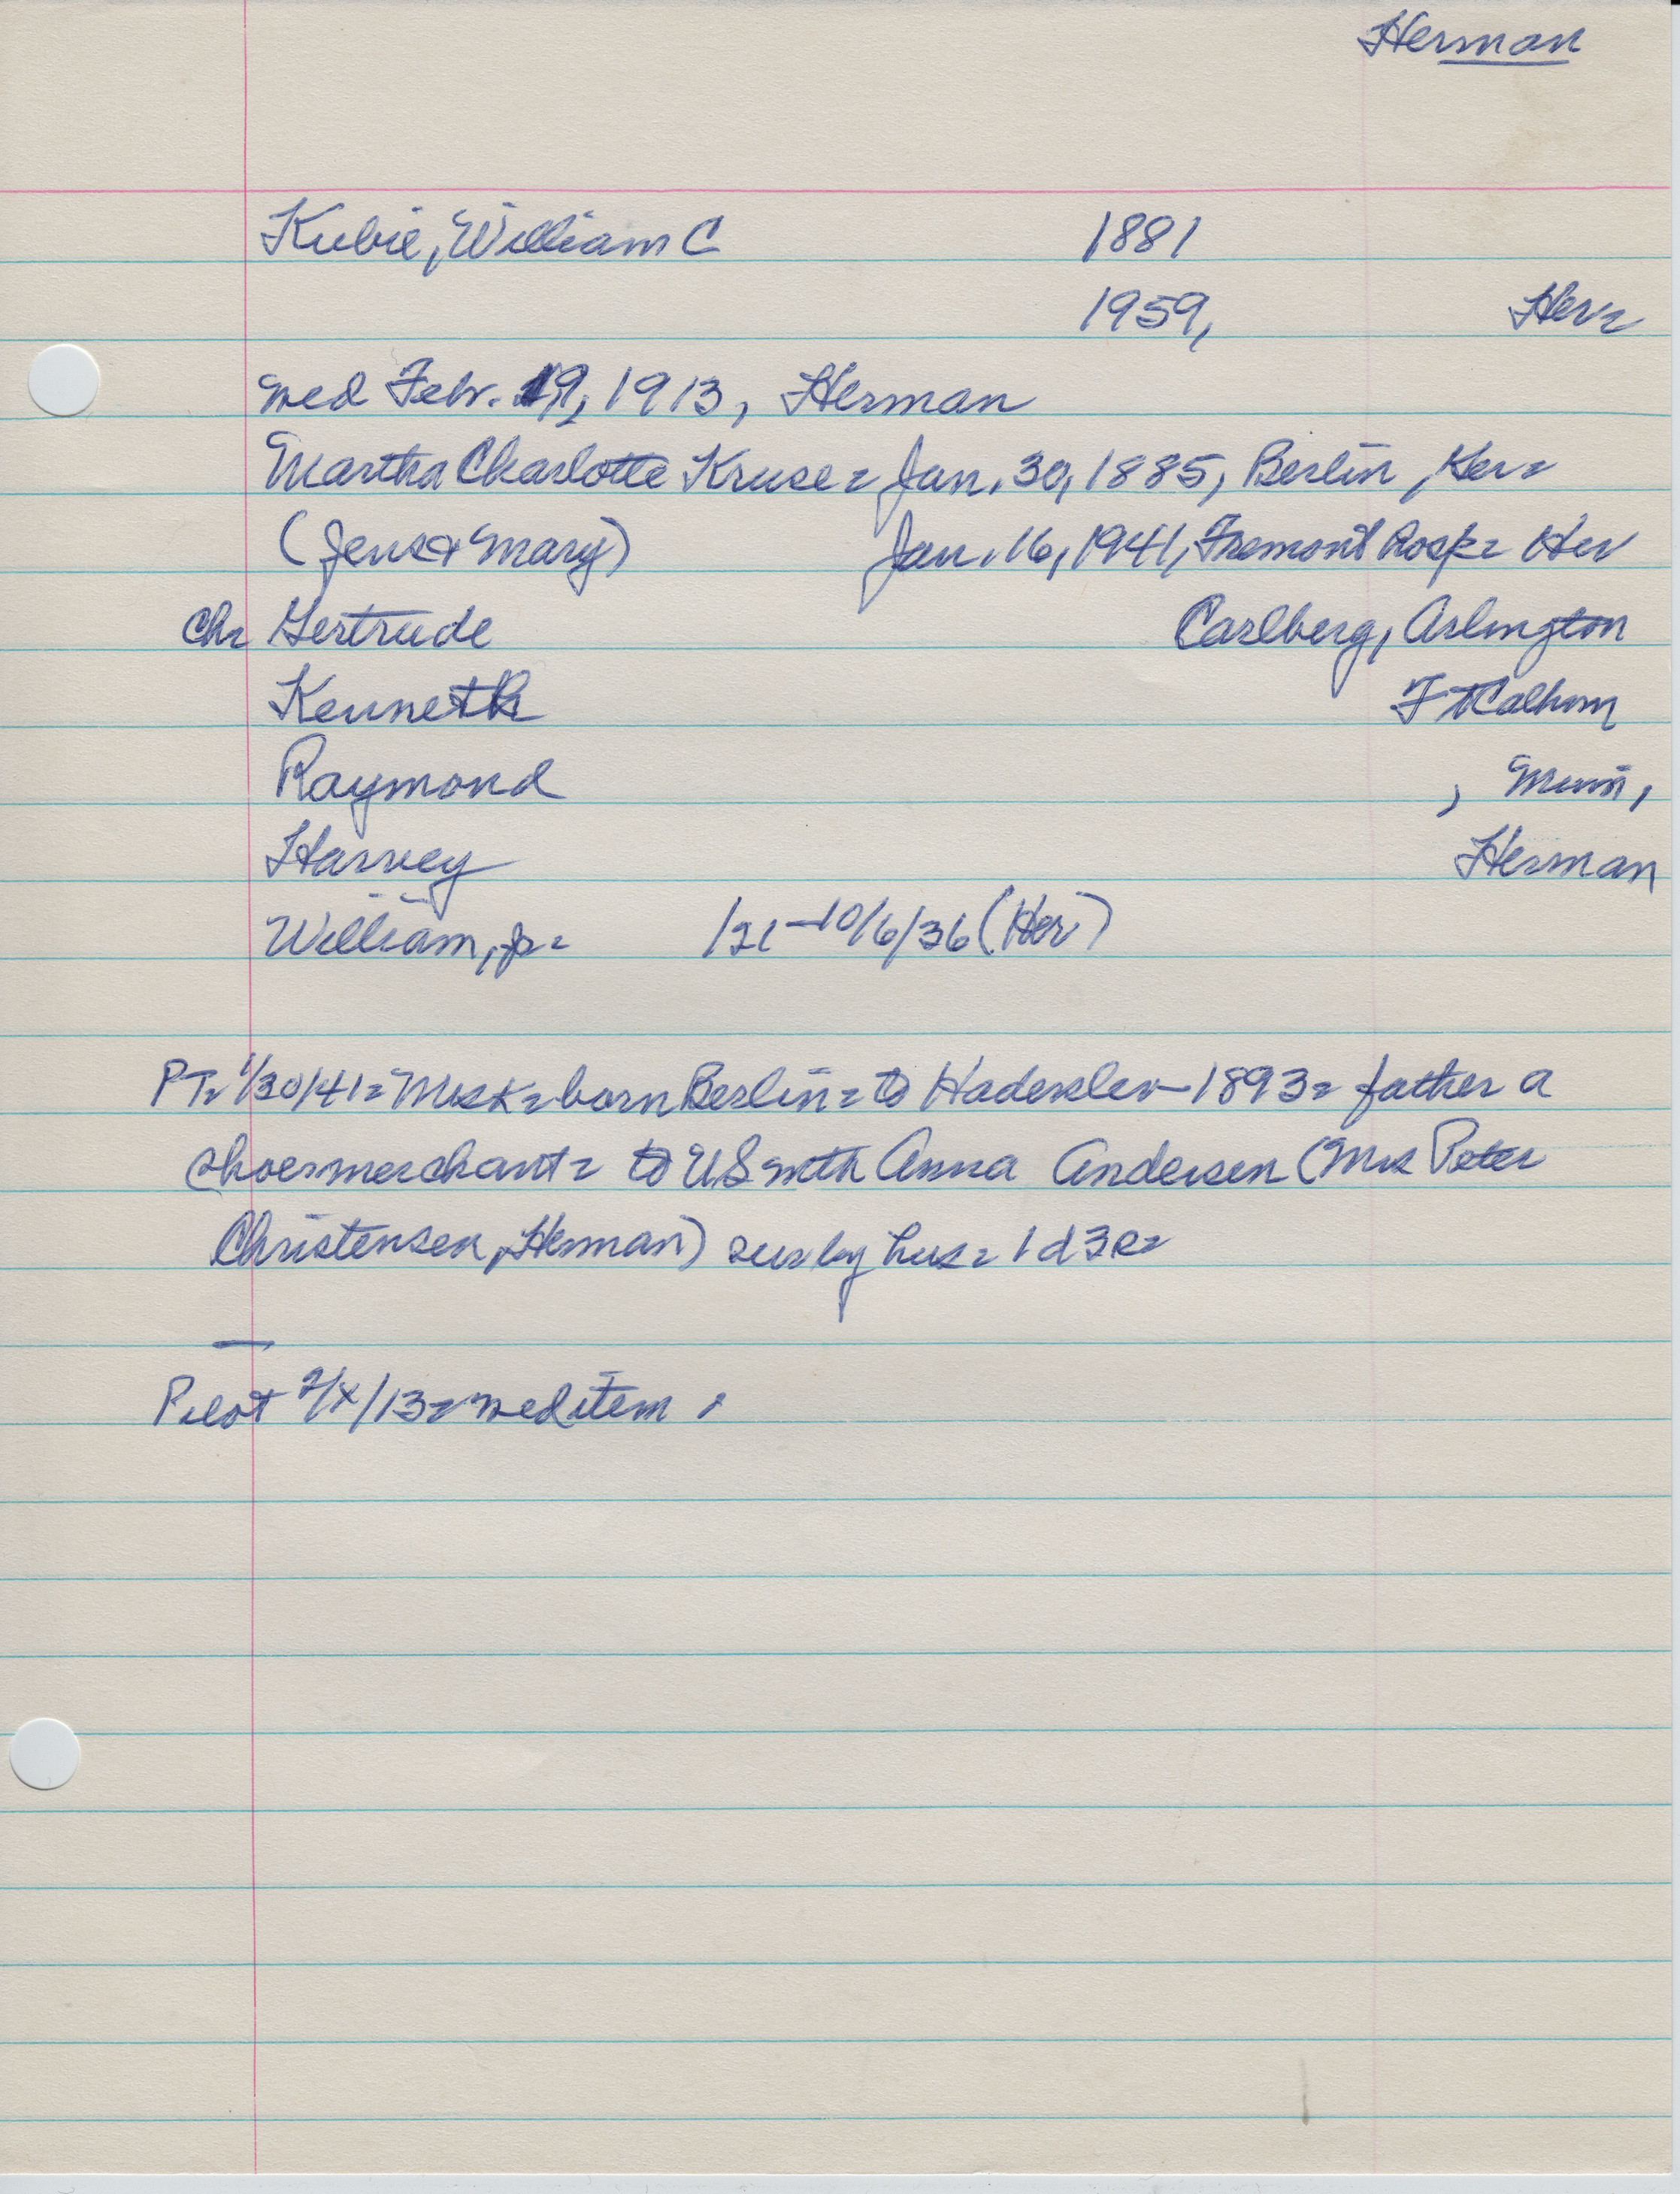 Herman
Kubie, William C 1881
1959, Her=
wed Febr. 19, 1913, Herman
Martha Charlotte Kruse= Jan. 30, 1885, Berlin, Ger=
(Jens & Mary) Jan. 16, 1941, Fremont Hosp= Her
Ch= Gertrude Carlberg, Arlington
Kenneth Ft Calhoun
Raymond , Minn,
Harvey Herman
William, Jr= -10/6/36 (Her)
PT= 1/30/41= Mrs K= born Berlin= to Haderslev 1893= father a
shoe merchant= to US with Anna Andersen (Mrs Peter
Christensen, Herman) sur by hus= 1 d 3 s=
Pilot 2/x/13= wed item.